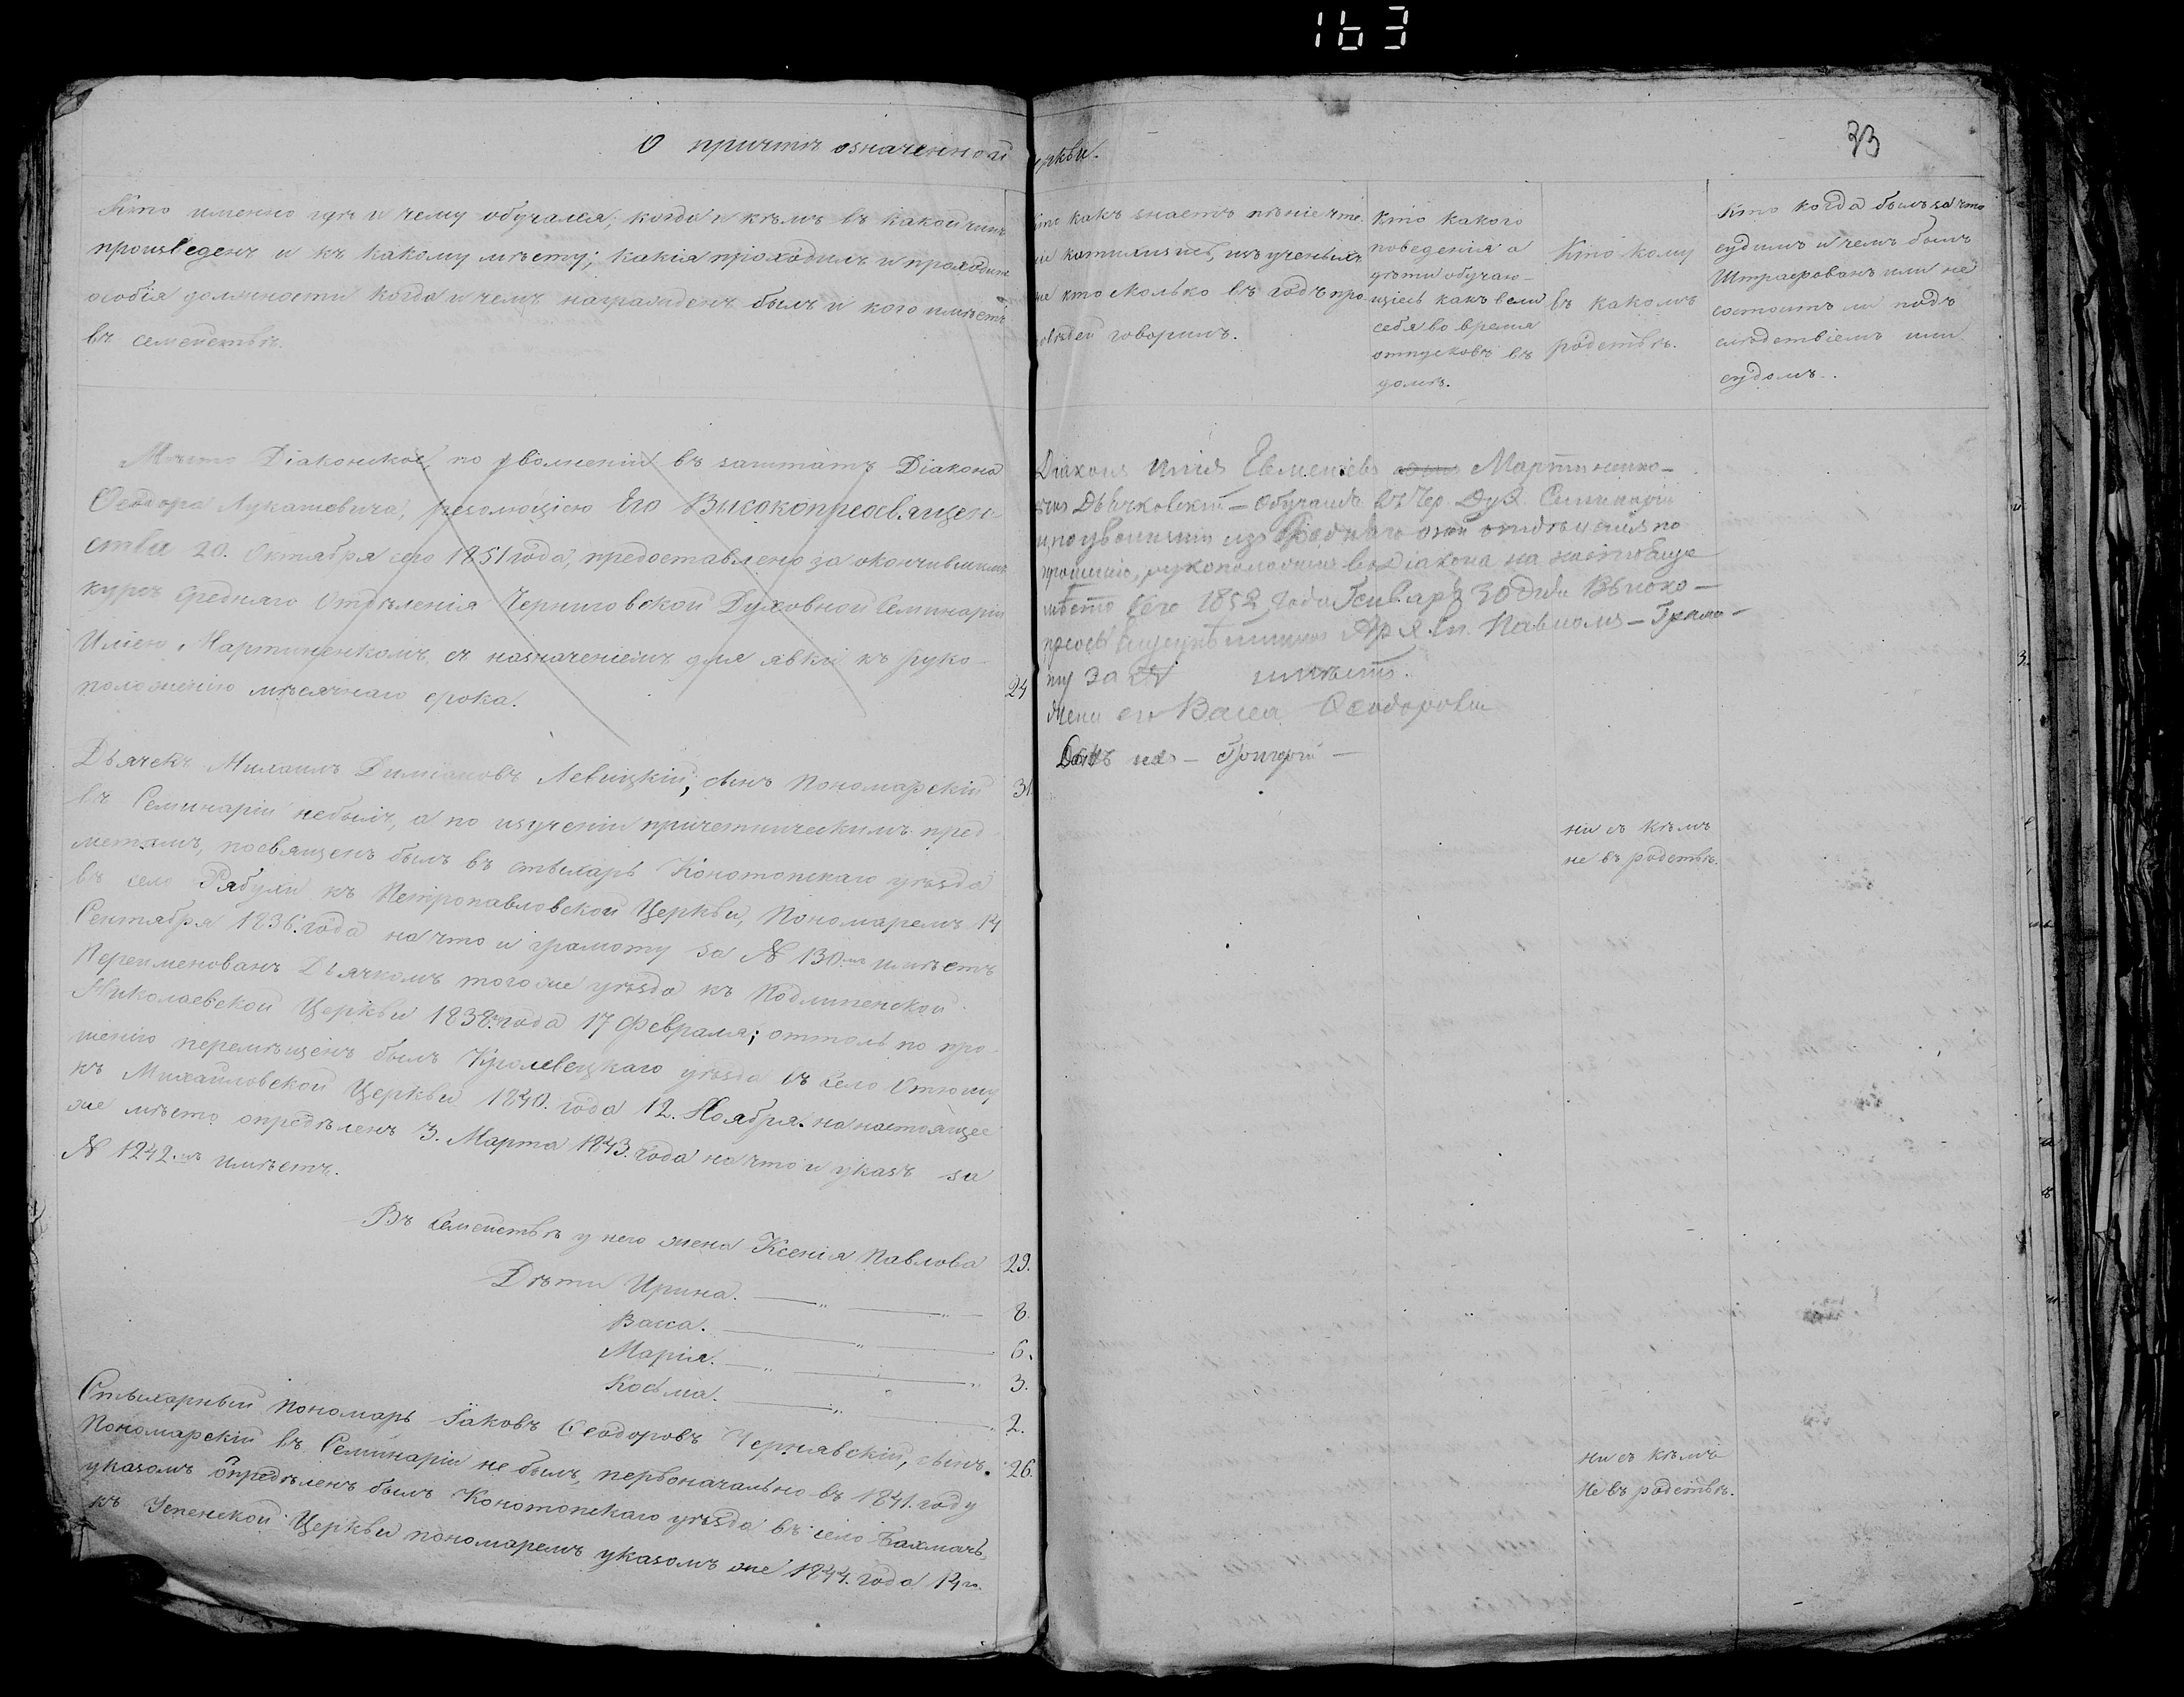 163
33
О причтѣ означенной
церкви.
Кто именно гдѣ и чему обучался, когда и кѣмъ въ какой чинъ
произведенъ и къ какому мѣсту; какія проходилъ и проходитъ
особыя должности когда и чемъ награжденъ былъ и кого имѣетъ
въ семействѣ.
Кто какъ знаетъ пѣніе чте
катихизисъ, изъ ученыхъ
кто сколько въ годъ про
повѣдей говорилъ.
Кто какого
поведенія а
дѣти обучаю-
щіесь какъ вели
себя во время
отпусковъ въ
домѣ.
Кто кому
въ какомъ
родствѣ.
Кто когда былъ за что
судимъ и чемъ былъ
Штрафованъ или не
состоитъ ли подъ
слѣдствіемъ или
судомъ.
Мѣсто Діаконское, по уволненіи въ заштатъ Діакона
Ѳеодора Лукашевича, резолюціею Его Высокопреосвящен-
ства 20. Октября сего 1851 года, предоставлено за окончившимъ
курсъ средняго Отдѣленія Черниговской Духовной Семинаріи
Иліею Мартиненкомъ, съ назначеніемъ для явки къ руко-
положенію мѣсячнаго срока.
24
Дьячекъ Михаилъ Диміановъ Левицкій, сынъ Пономарскій
31.
въ Семинаріи небылъ, а по изученіи причетническимъ пред-
метамъ, посвященъ былъ въ стихарь Конотопскаго уѣзда
въ село Рябухи къ Петропавловской Церкви, Пономаремъ 14
Сентября 1836. года на что и грамоту за № 130.мъ имѣетъ
Переименованъ Дьячкомъ того же уѣзда къ Подлипенской
Николаевской Церкви 1838. года 17 Февраля; оттоль по про-
шенію перемѣщенъ былъ Кролевецкаго уѣзда въ село Отюшу
къ Михайловской Церкви 1840. года 12. Ноября. на настоящее
же мѣсто опредѣленъ 3. Марта 1843. года на что и указъ за
№ 1242.мъ имѣетъ.
Въ Семействѣ у него жена Ксенія Павлова 29.
Дѣти Ирина. 8.
Васса. 6.
Марія. 3.
Косьма. 2.
Стихарный Пономарь Іаковъ Ѳеодоровъ Чернявскій, сынъ 26.
Пономарскій въ Семинаріи не былъ, первоначально въ 1841. году
указомъ опредѣленъ былъ Конотопскаго уѣзда въ село Бахмачъ,
къ Успенской Церкви пономаремъ указомъ же 1844. года 14го.
Діаконъ Илія Евменіевъ Мартиненко-
Дьячковскій — Обучался въ Чер. Дух. Семинаріи
и по уволненіи изъ средняго оной отдѣленія по
прошенію, рукоположенъ во Діакона на настоящее
мѣсто сего 1852 года Генваря 30 дня Высоко-
преосвященнѣйшимъ Арх. Еп. Павломъ — Грамо-
ту за № имѣетъ.
Жена его Васса Ѳеодорова
Сынъ ихъ — Григорій —
ни съ кѣмъ
не въ родствѣ.
ни съ кѣмъ
Не въ родствѣ.